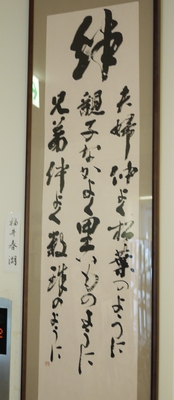 絆
夫婦仲よく松葉のように
親子なかよく里いものように
兄弟仲よく数珠のように
福井春湖